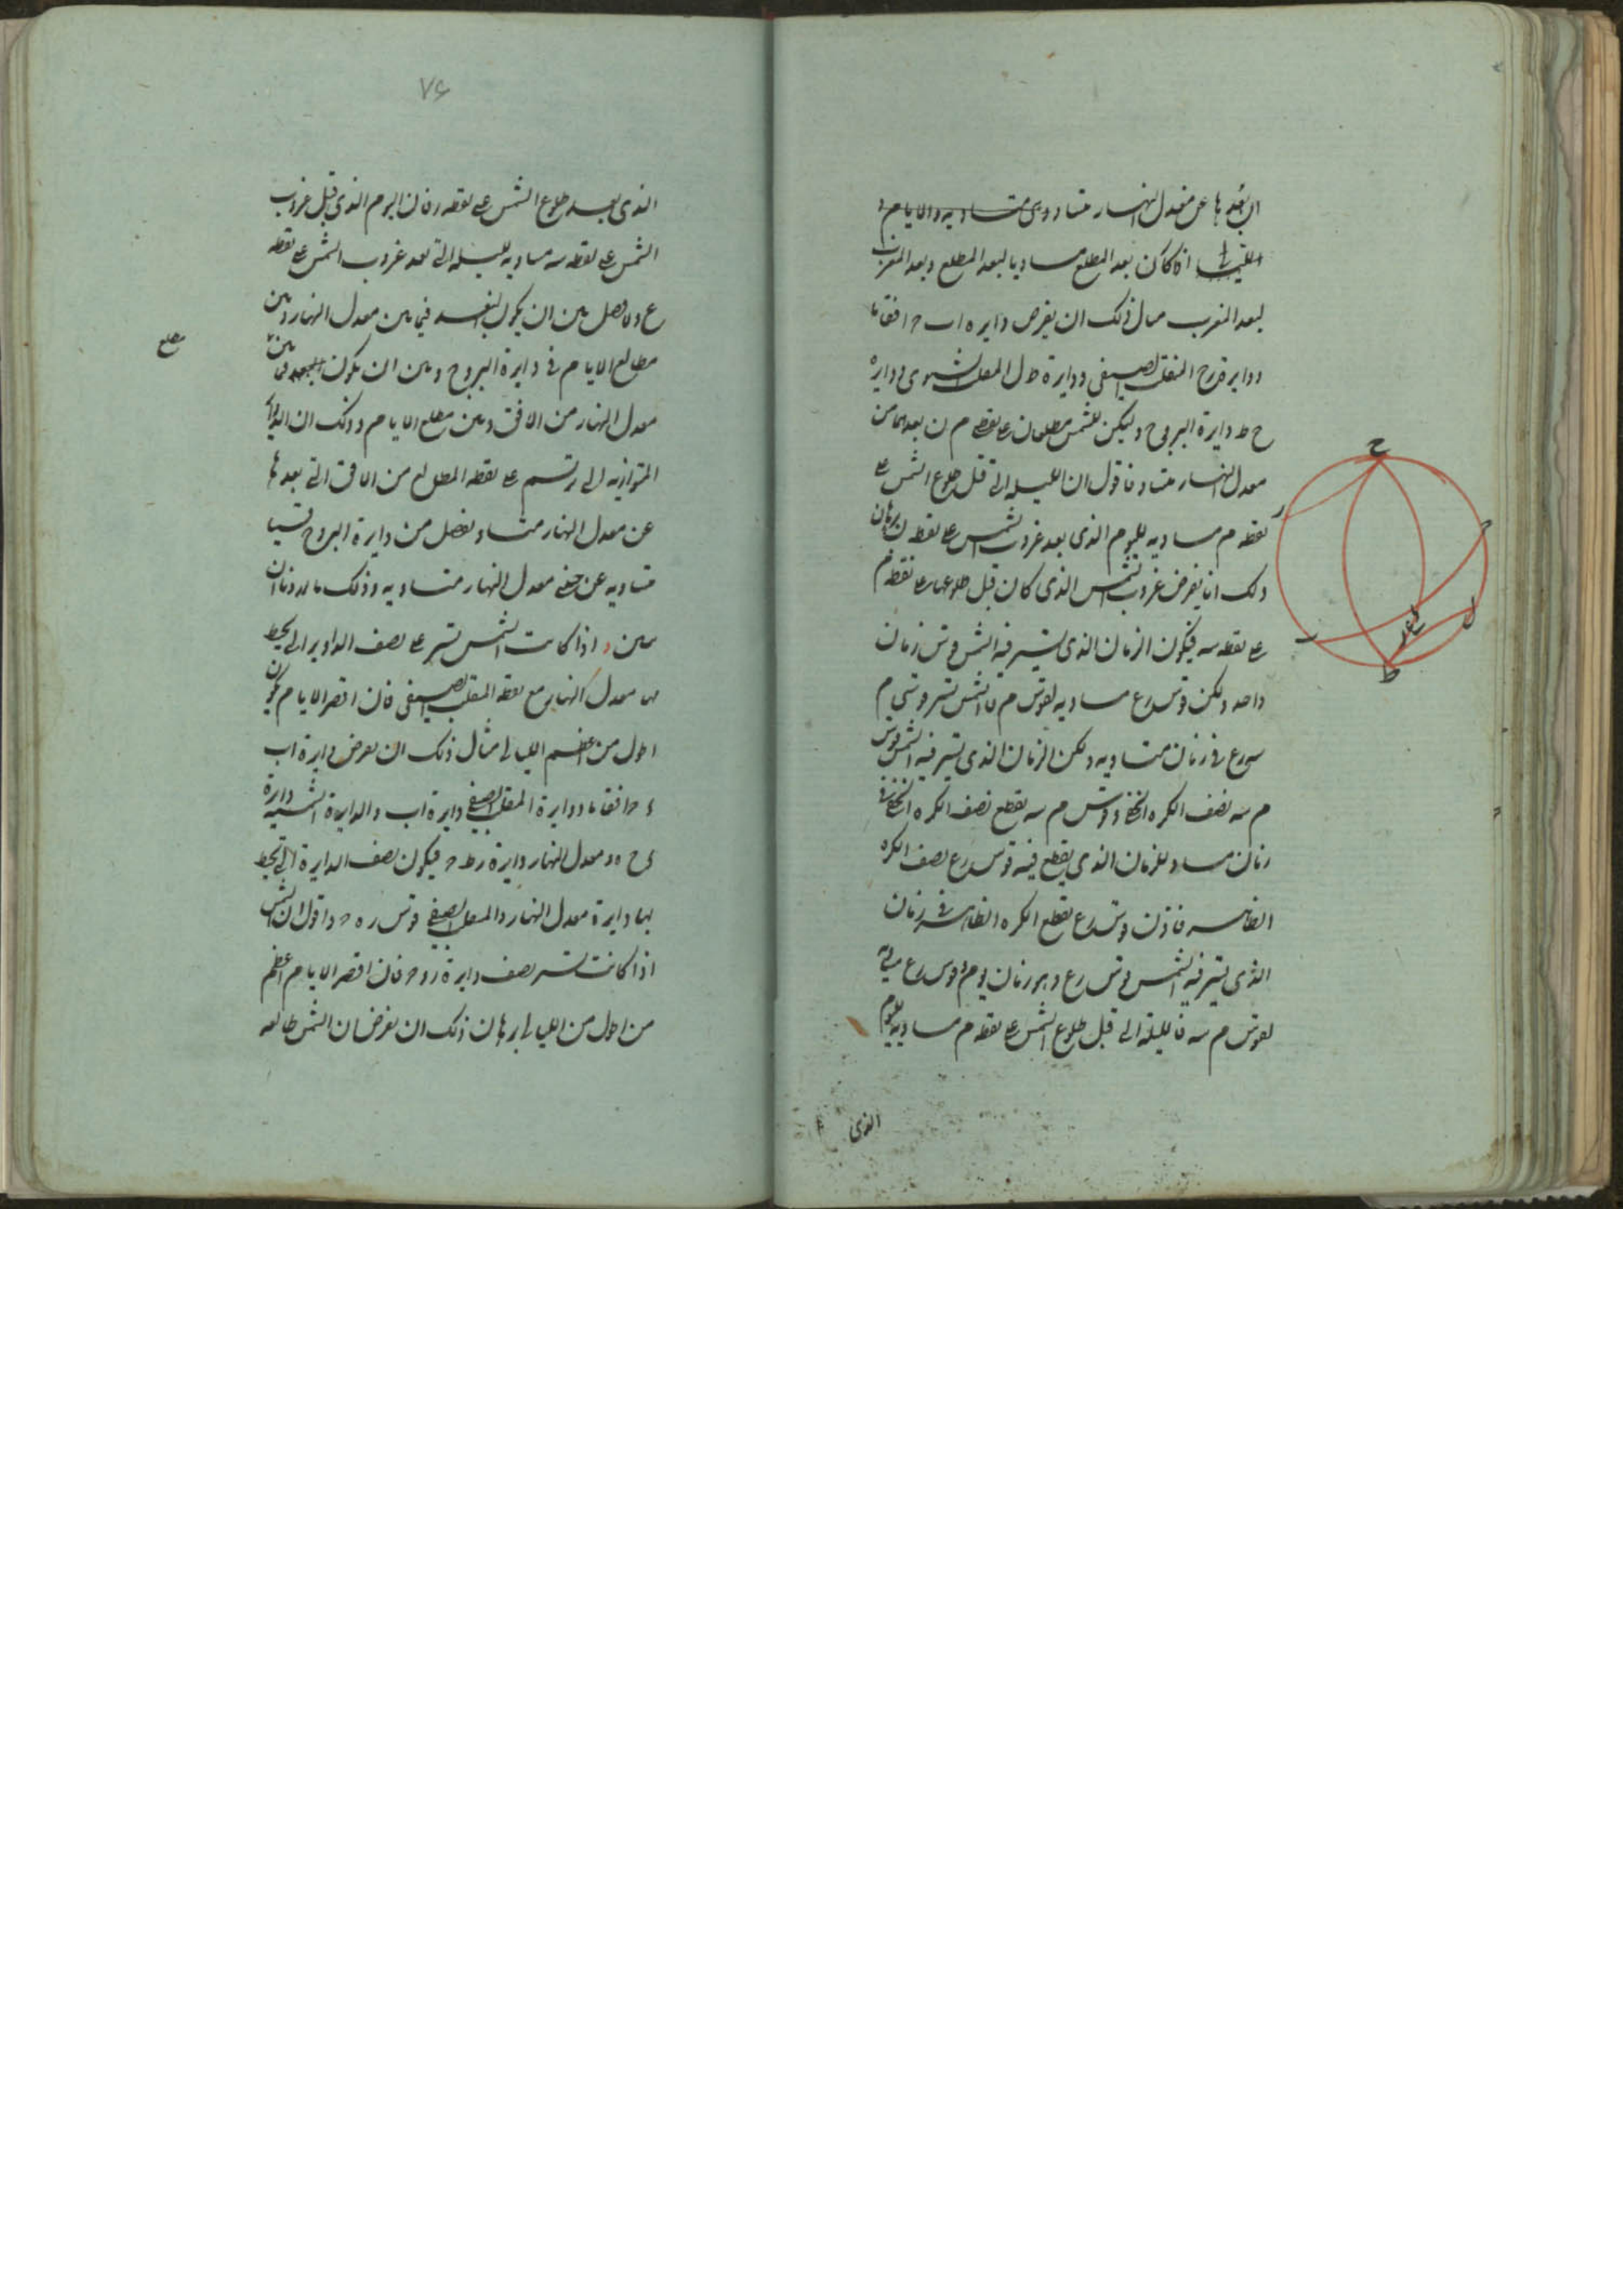 التى بعدها عن معدل النهار متساو وى متساويه والايام و
الليالى اذا كان بعد المطلع مساويا لبعد المطلع وبعد المغرب
لبعد المغرب مثال ذلك ان يفرض دايره اب ح افقا ما
ودايره المنقلب الصيفى ودايرة ط ل المنقلب الشتوى ودايرة
ح ط دايرة البروج وليكن للشمس مطلعان على نقطتى م ن بعدهما من
معدل النهار متساو فاقول ان الليله التى قبل طلوع الشمس على
نقطه م مساويه لليوم الذى بعد غروب الشمس على نقطه ن برهان
ذلك انا نفرض غروب الشمس الذى كان قبل طلوعها على نقطه م
على نقطه سه فيكون الزمان الذى تسير فيه الشمس قوس زمان
واحد ولكن قوس رع مساويه لقوس م فالشمس تسير قوسى م
سه رع فى زمان متساويه ولكن الزمان الذى تسير فيه الشمس قوس
م سه نصف الكره الخفى وقوس م سه يقطع نصف الكره الخفى فى
زمان مساو للزمان الذى يقطع فيه قوس رع نصف الكره
الظاهر فاذن قوس رع يقطع الكره الظاهر فى زمان
الذى تسير فيه الشمس قوس رع وهو زمان يوم وقوس رع مساويه
لقوس م سه فالليلة التى قبل طلوع الشمس على نقطه م مساويه لليوم
الذى
ح
ط
ل
٧۶
الذى بعد طلوع الشمس على نقطه ر فان اليوم الذى قبل غروب
الشمس على نقطه سه مساويه لليله التى بعد غروب الشمس على نقطه
ع ولا فصل بين ان يكون البعد فيما بين معدل النهار وبين
مطالع الايام فى دايرة البروج وبين ان يكون البعد فيما بين
معدل النهار من الافق وبين مطلع الايام وذلك ان الدواير
المتوازيه التى ترتسم على نقطه المطلع من الافق التى بعدها
عن معدل النهار متساو تفصل من دايرة البروج قسيا
متساويه عن جنبتى معدل النهار متساويه وذلك ما اردنا ان
نبين و اذا كانت الشمس تسير على نصف الدواير التى يحيط
بها معدل النهار مع نقطه المنقلب الصيفى فان اقصر الايام يكون
اطول من اعظم الليالى مثال ذلك ان نفرض دايرة اب
ء ح افقا ما ودايرة المنقلب الصيفى دايرة اب والدايرة الشتويه دايرة
ى ح ه ومعدل النهار دايرة رط ح فيكون نصف الدايرة التى يحيط
بها دايرة معدل النهار والمنقلب الصيفى قوس ر ه ح واقول ان الشمس
اذا كانت تسير نصف دايرة ر و ح فان اقصر الايام اعظم
من اطول من الليالى برهان ذلك ان نفرض ان الشمس طالعه
مطلع